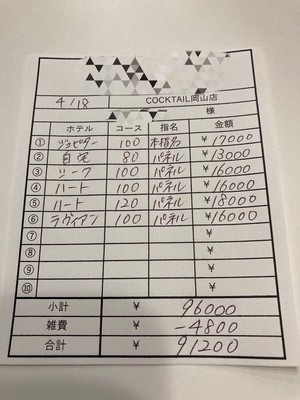 4/18 COCKTAIL岡山店
様
ホテル コース 指名 金額
① ジュピター 100 本指名 ¥17000
② 自宅 80 パネル ¥13000
③ シーク 100 パネル ¥16000
④ ハート 100 パネル ¥16000
⑤ ハート 120 パネル ¥18000
⑥ ラヴィアン 100 パネル ¥16000
⑦ ¥
⑧ ¥
⑨ ¥
⑩ ¥
小計 ¥ 96000
雑費 ¥ -4800
合計 ¥ 91200